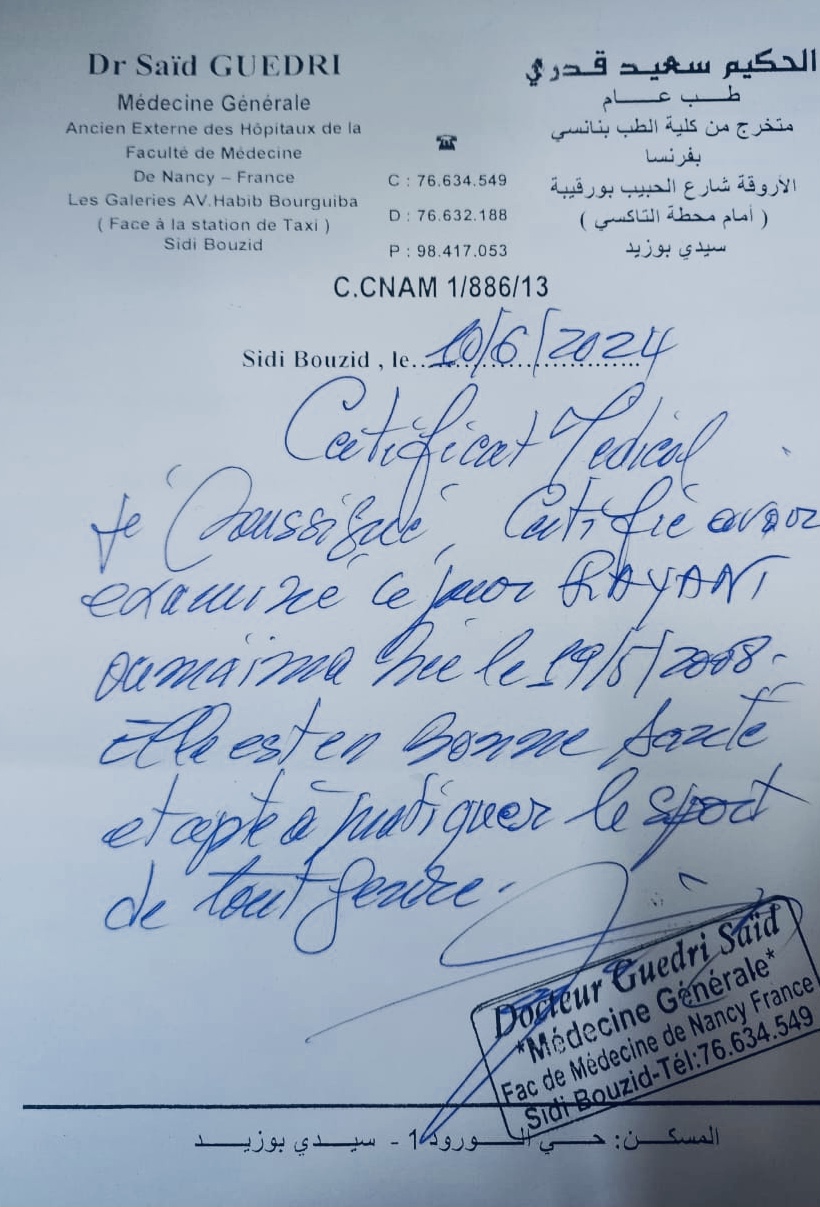 Dr Saïd GUEDRI
Médecine Générale
Ancien Externe des Hôpitaux de la
Faculté de Médecine
De Nancy – France
Les Galeries AV.Habib Bourguiba
( Face à la station de Taxi )
Sidi Bouzid
☎
C : 76.634.549
D : 76.632.188
P : 98.417.053
الحكيم سعيد قدري
طب عام
متخرج من كلية الطب بنانسي
بفرنسا
الأروقة شارع الحبيب بورقيبة
( أمام محطة التاكسي )
سيدي بوزيد
C.CNAM 1/886/13
Sidi Bouzid , le 10/6/2024
Certificat Medical
Je Soussigné, Certifie avoir
examiné ce jour RAYANI
oumaima née le 19/5/2008.
Elle est en Bonne Santé
et apte à pratiquer le sport
de tout genre.
Docteur Guedri Saïd
*Médecine Générale*
Fac de Médecine de Nancy France
Sidi Bouzid-Tél:76.634.549
المسكن: حي الورود 1 - سيدي بوزيد